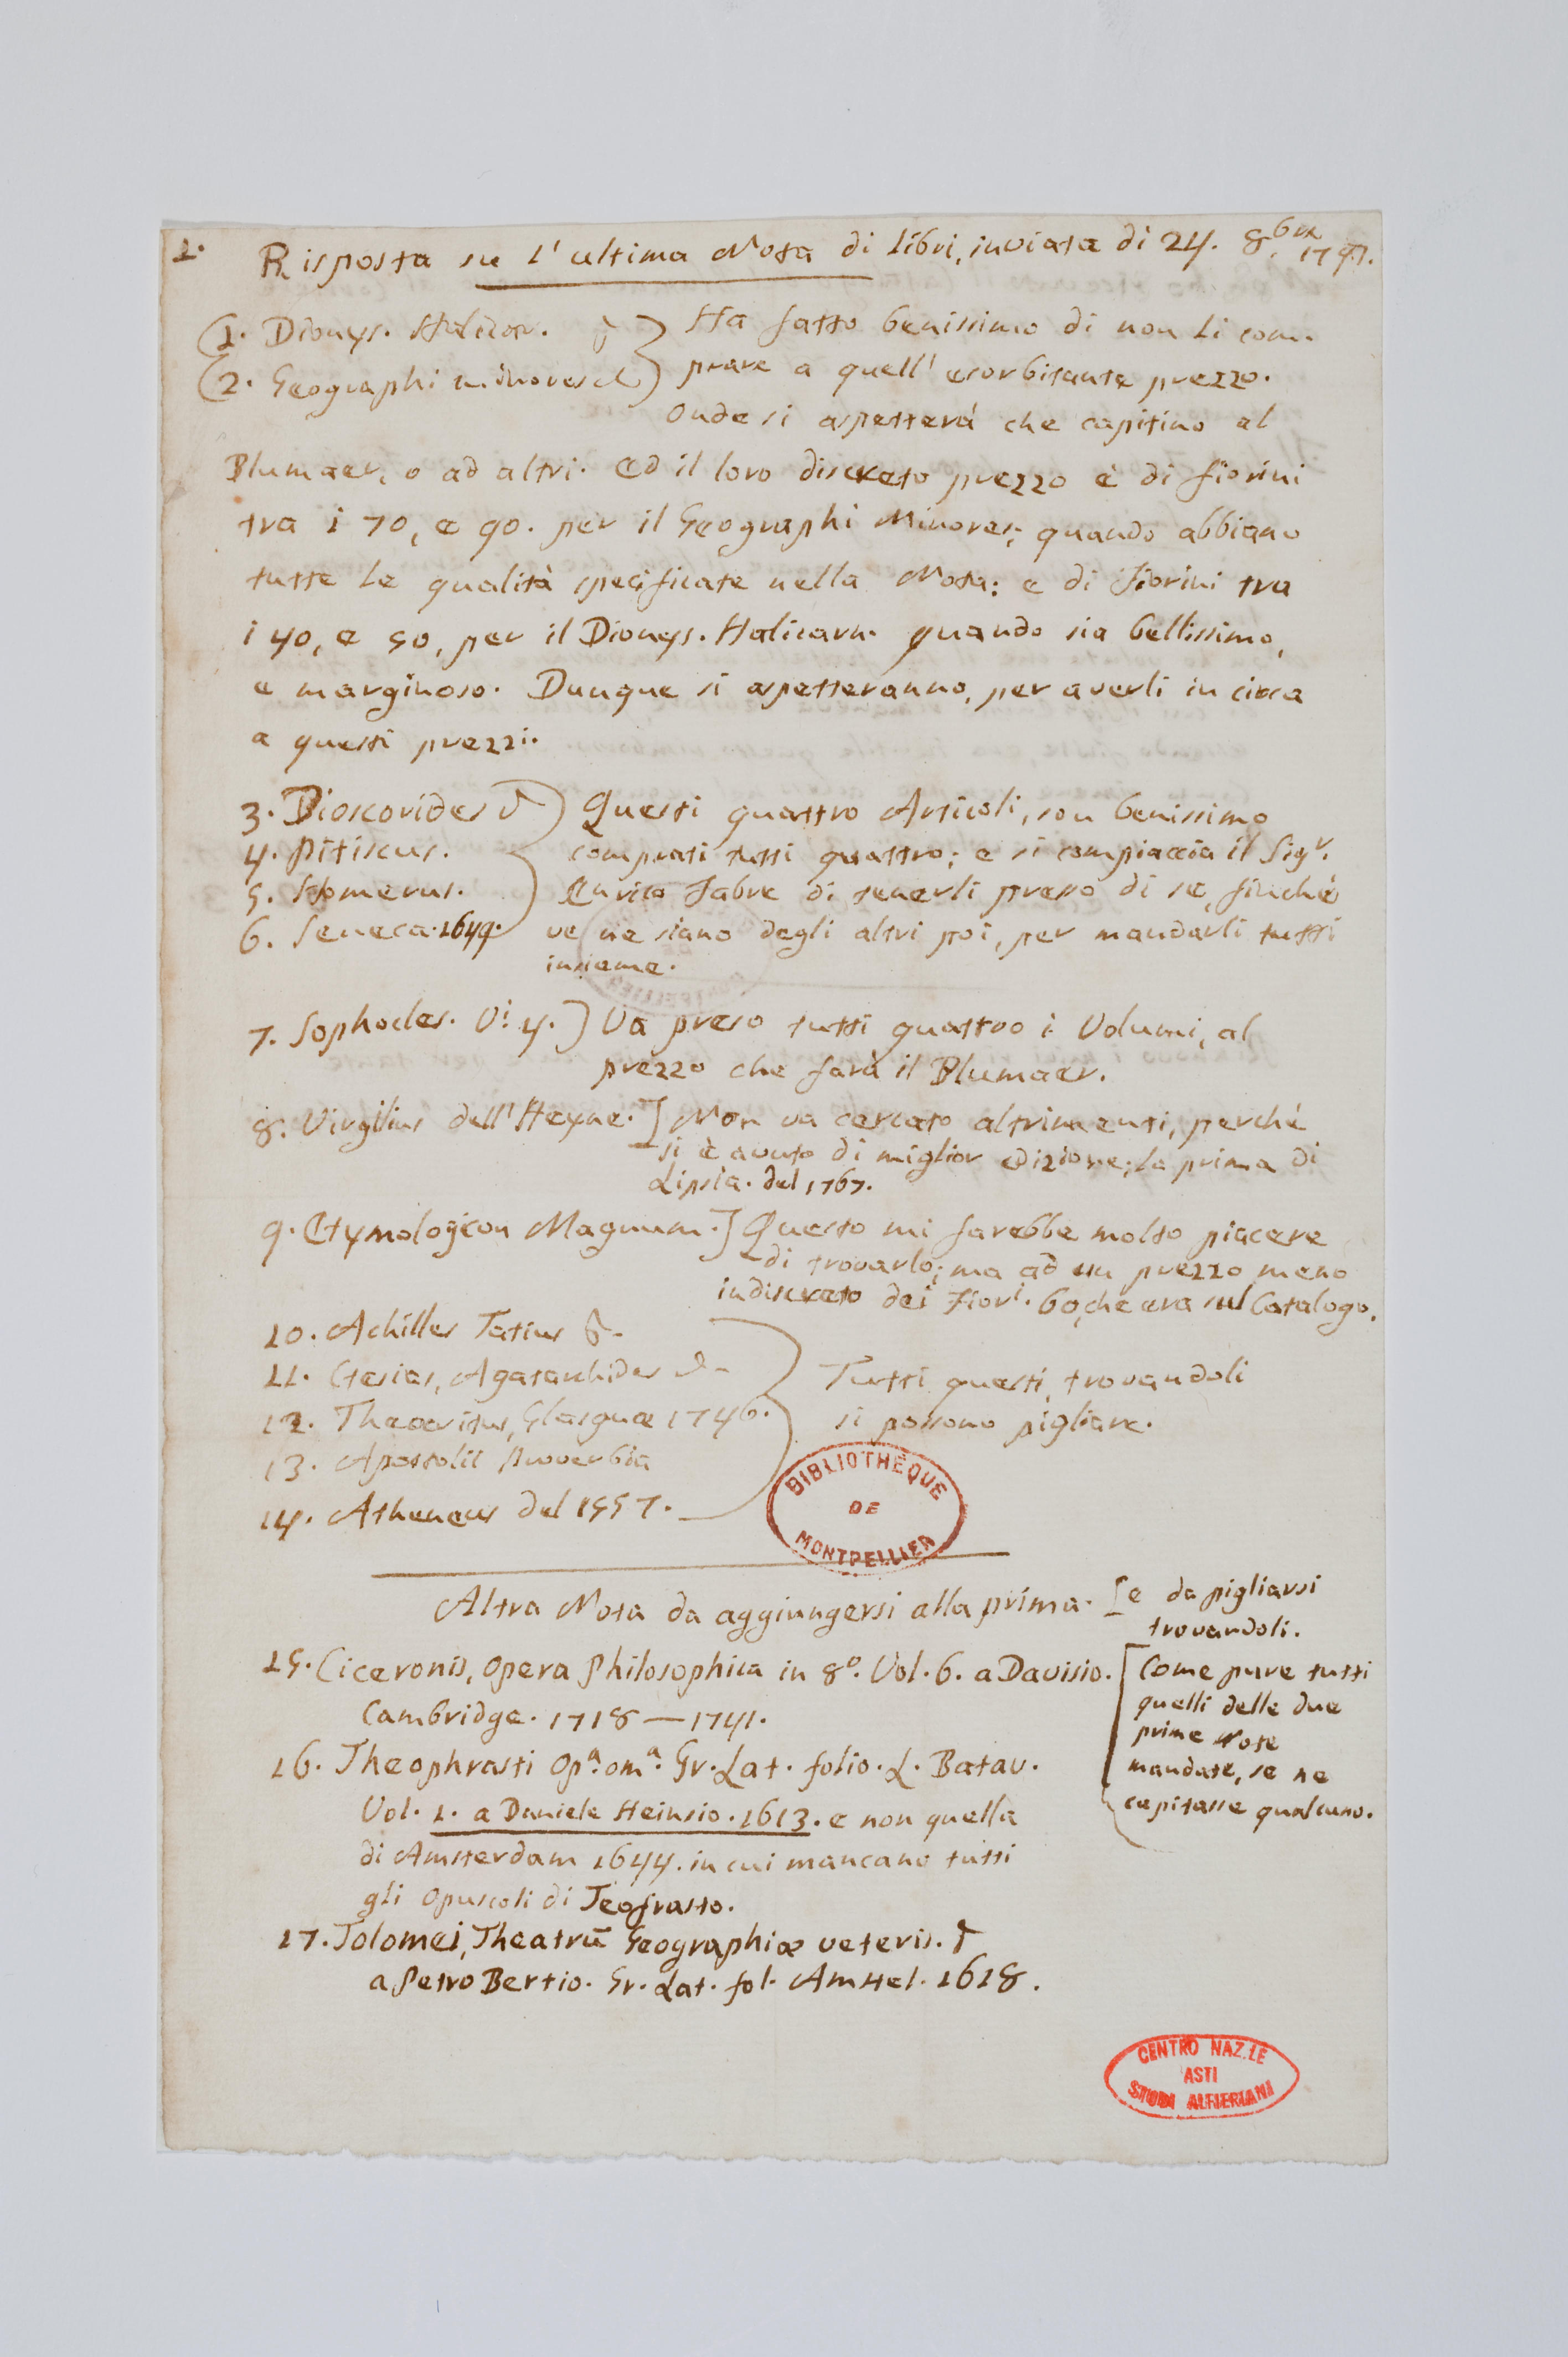 1. Risposta su l'ultima Nota di libri, inviata di 24. 8bre 1797.
1. Dionys. Halicar.
2. Geographi minores
Ha fatto benissimo di non li com-
prare a quell' esorbitante prezzo.
Onde si aspetterà che capitino al
Blumaer, o ad altri. Ed il loro discreto prezzo è di fiorini
tra i 70, e 90. per il Geographi Minores; quando abbiano
tutte le qualità specificate nella Nota: e di Fiorini tra
i 40, e 50, per il Dionys. Halicarn. quando sia bellissimo,
e marginoso. Dunque si aspetteranno, per averli in circa
a questi prezzi.
3. Dioscorides
4. Pitiscus.
5. Homerus.
6. Seneca. 1649.
Questi quattro Articoli, son benissimo
comprati tutti quattro; e si compiaccia il Sigr.
Enrico Fabre di tenerli presso di se, finchè
ve ne siano degli altri poi, per mandarli tutti
insieme.
7. Sophocles. Vi. 4. ] Va preso tutti quattro i Volumi, al
prezzo che farà il Blumaer.
8. Virgilius dell'Heyne. ] Non va cercato altrimenti, perchè
si è avuto di miglior edizione; la prima di
Lipsia. del 1767.
9. Etymologicon Magnum. ] Questo mi farebbe molto piacere
di trovarlo; ma ad un prezzo meno
indiscreto dei Fiori. 60, che era sul Catalogo.
10. Achilles Tatius &
11. Ctesias, Agatarchides &
12. Theocritus, Glasguæ 1746.
13. Apostolii Proverbia
14. Atheneus del 1557.
Tutti questi, trovandoli
si possono pigliare.
BIBLIOTHÈQUE
DE
MONTPELLIER
Altra Nota da aggiungersi alla prima. [e da pigliarsi
trovandoli.
15. Ciceronis, Opera Philosophica in 8º. Vol. 6. a Davisio.
Cambridge. 1718 — 1741.
16. Theophrasti Opa. oma. Gr. Lat. folio. L. Batav.
Vol. 1. a Daniele Heinsio. 1613. e non quella
di Amsterdam 1644. in cui mancano tutti
gli Opuscoli di Teofrasto.
17. Tolomei, Theatrū Geographiæ veteris.
a Petro Bertio. Gr. Lat. fol. Amstel. 1618.
[Come pure tutti
quelli delle due
prime Note
mandate, se ne
capitasse qualcuno.
CENTRO NAZ.LE
ASTI
STUDI ALFIERIANI